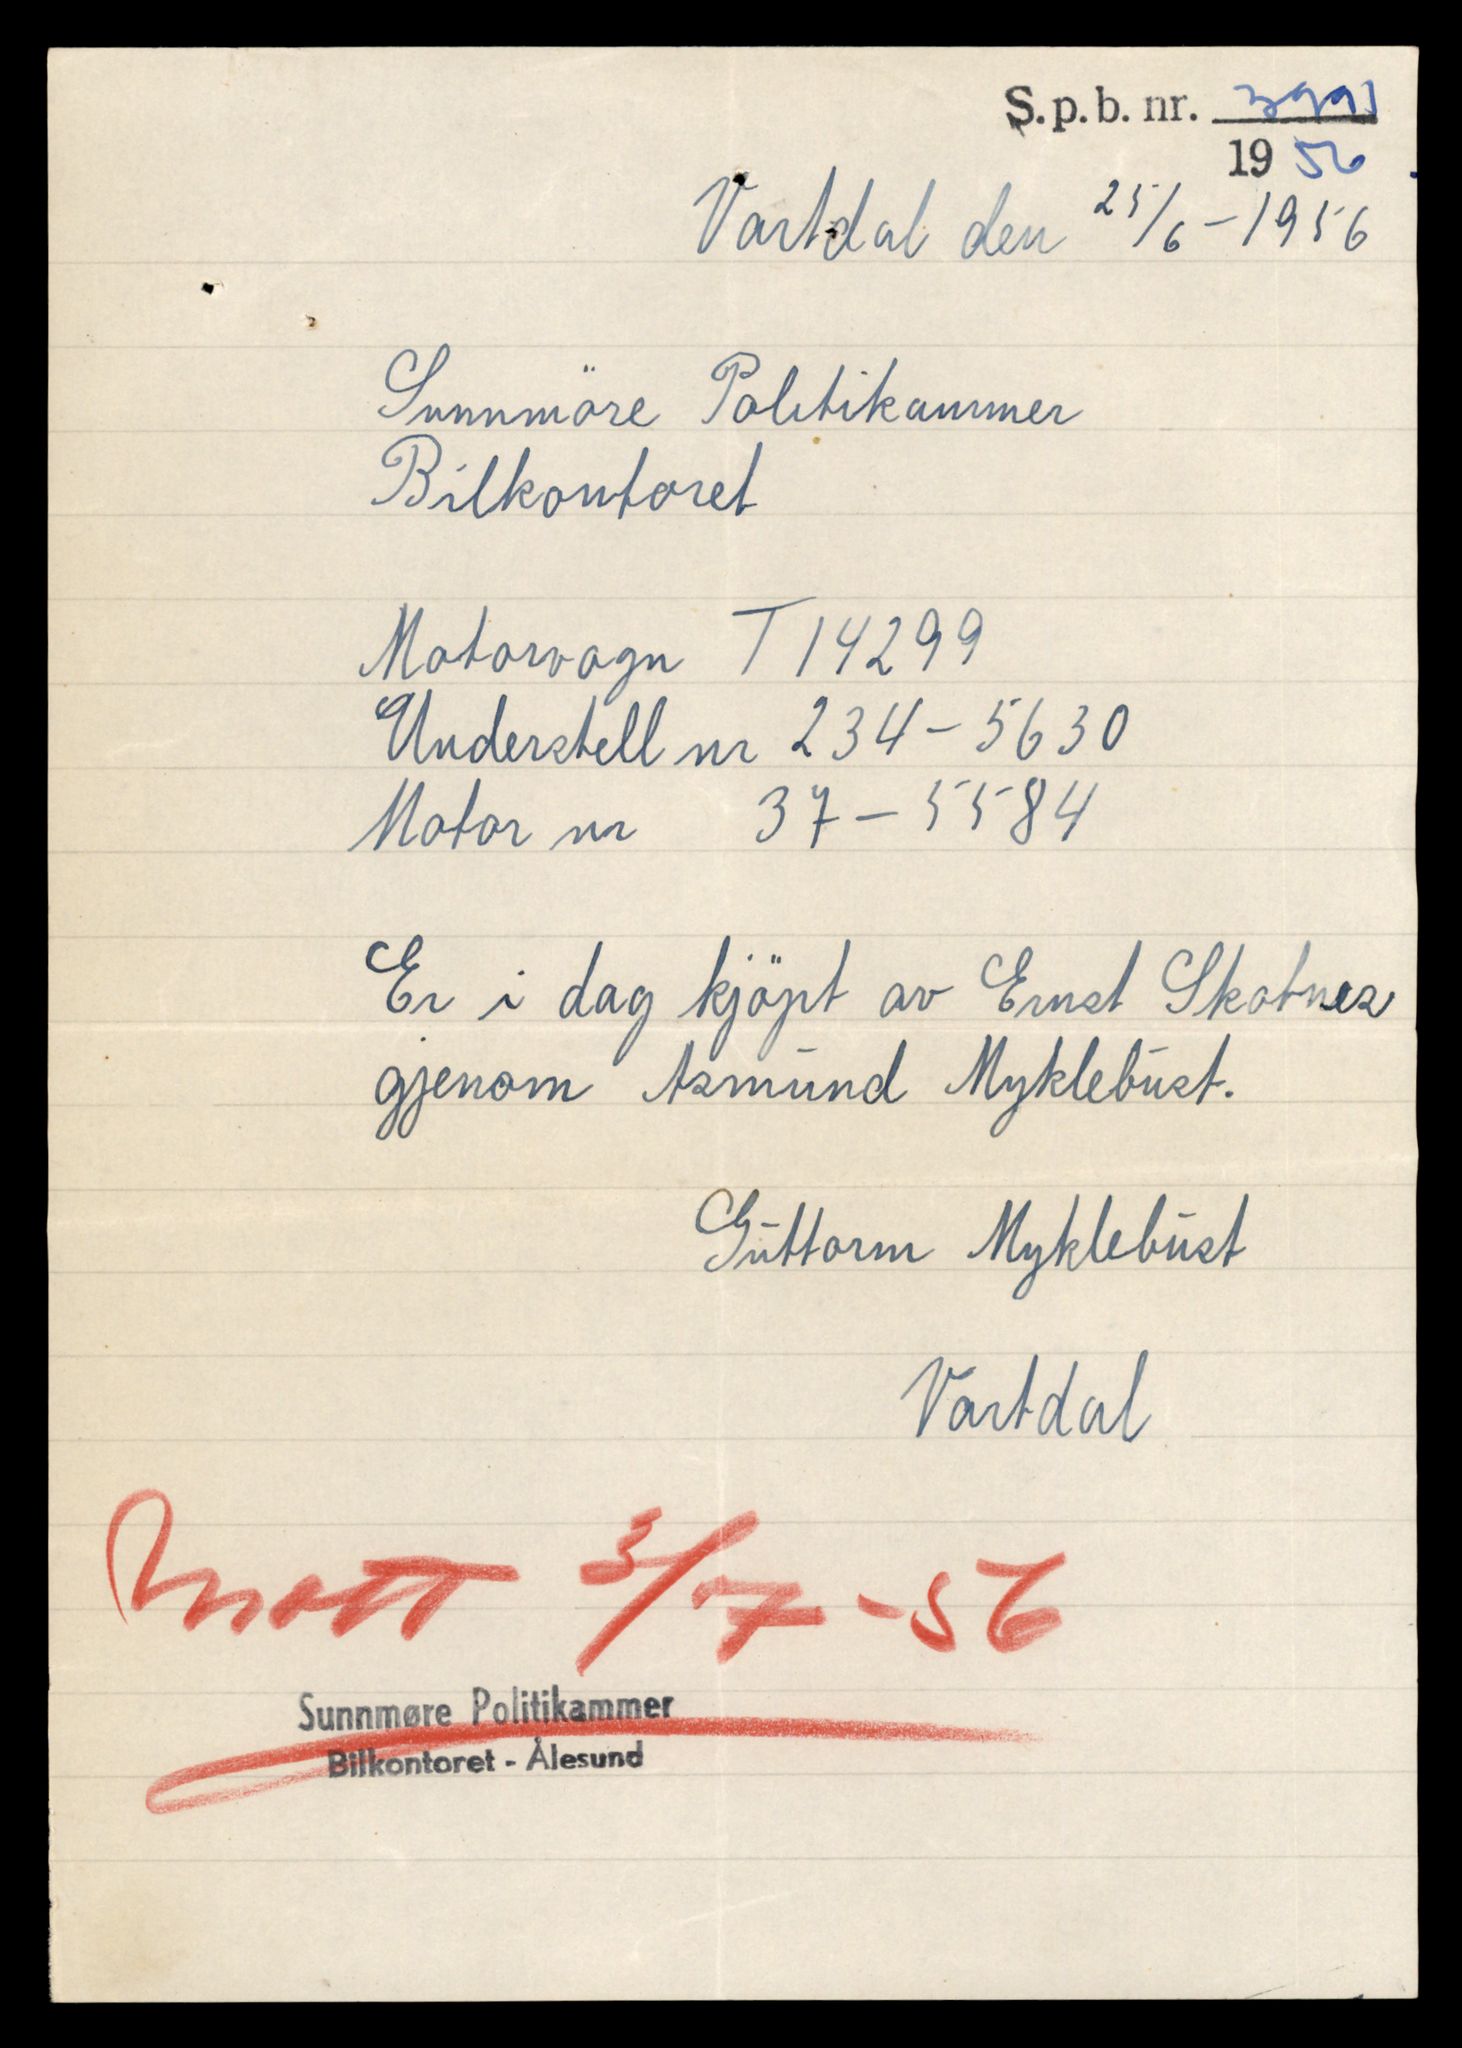 S.p.b. nr.
19 56
Vartdal den 25/6-1956
Sunnmöre Politikammer
Bilkontoret
Motorvogn T 14299
Understell nr 234-5630
Motor nr 37-5584
Er i dag kjöpt av Ernst Skotnes
gjenom Asmund Myklebust.
Guttorm Myklebust
Vartdal
Mott 3/7-56
Sunnmøre Politikammer
Bilkontoret - Ålesund